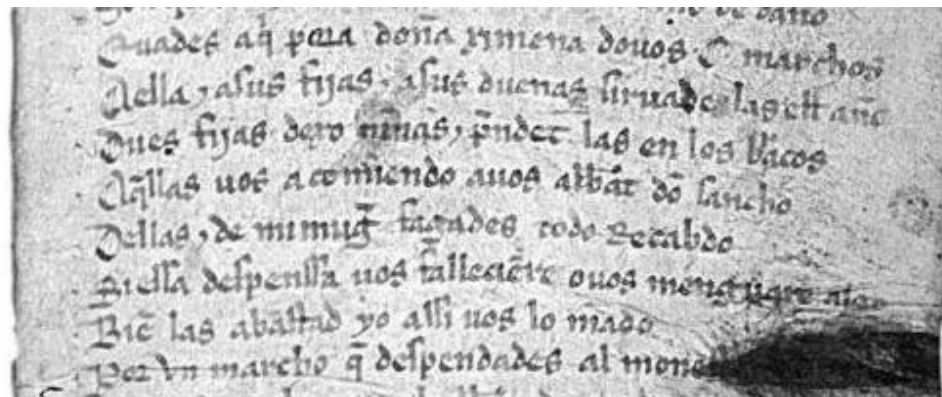 de daño
Euades aq̄ pora doña ximena douos .C. marchos
Aella ⁊ asus fijas ⁊ asus duenas siruades las est año
Dues fijas dexo nin̄as ⁊ p̄ndet las en los braços
Aq̄llas uos acomiēdo auos abbat dō sancho
Dellas ⁊ de mi muḡ fagades todo Recabdo
Si essa despenssa uos falleciḗre ouos menguare algo
Biē las abastad yo assi uos lo mādo
Por vn marcho q̄ despendades al mone